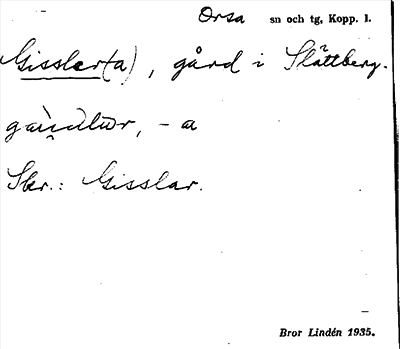 Orsa sn och tg, Kopp. l.
Gissler(a), gård i Slättberg.
-a
Skr.: Gisslar.
Bror Lindén 1935.